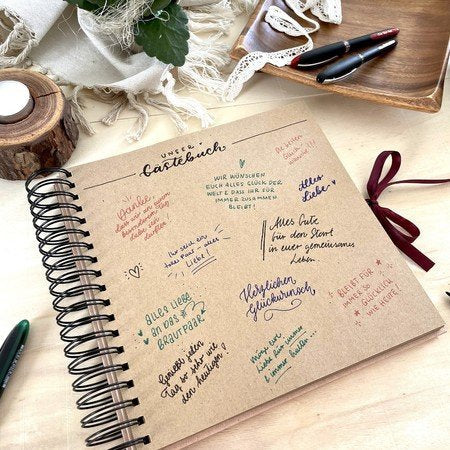 UNSER
Gästebuch
Die besten
Glück
WIR WÜNSCHEN
EUCH ALLES GLÜCK DER
WELT & DASS IHR FÜR
IMMER ZUSAMMEN
BLEIBT!
Alles
Liebe
Danke,
dass wir an eurem
besonderen Tag
dabei sein
durften!
Ihr seid ein
tolles Paar - alles
Liebe!
Alles Gute
für den Start
in euer gemeinsames
Leben.
Herzlichen
Glückwunsch
BLEIBT FÜR
IMMER SO
GLÜCKLICH
WIE HEUTE!
ALLES LIEBE
AN DAS
BRAUTPAAR
Genießt jeden
Tag so sehr wie
den heutigen!
Möge eure
Liebe für immer
& immer halten...